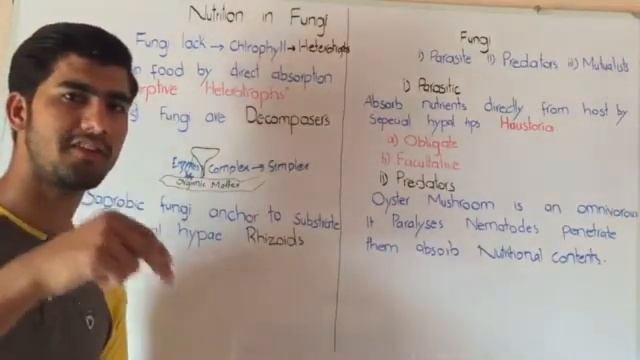 Nutrition in Fungi
Fungi lack → Chlrophyll → Heterotrophs
food by direct absorption
rptive "Heterotrophs"
Fungi are Decomposers
Enzymes Complex → Simplex
Organic Matter
Saprobic fungi anchor to Substrate
hypae Rhizoids
Fungi
i) Parasite ii) Predators iii) Mutualists
i) Parasitic
Absorb nutrients directly from host by
Sepecual hypal tips Haustoria
a) Obligate
b) Facultative
ii) Predators
Oyster Mushroom is an omnivorous
It Paralyses Nematodes penetrate
them absorb Nutritional contents.